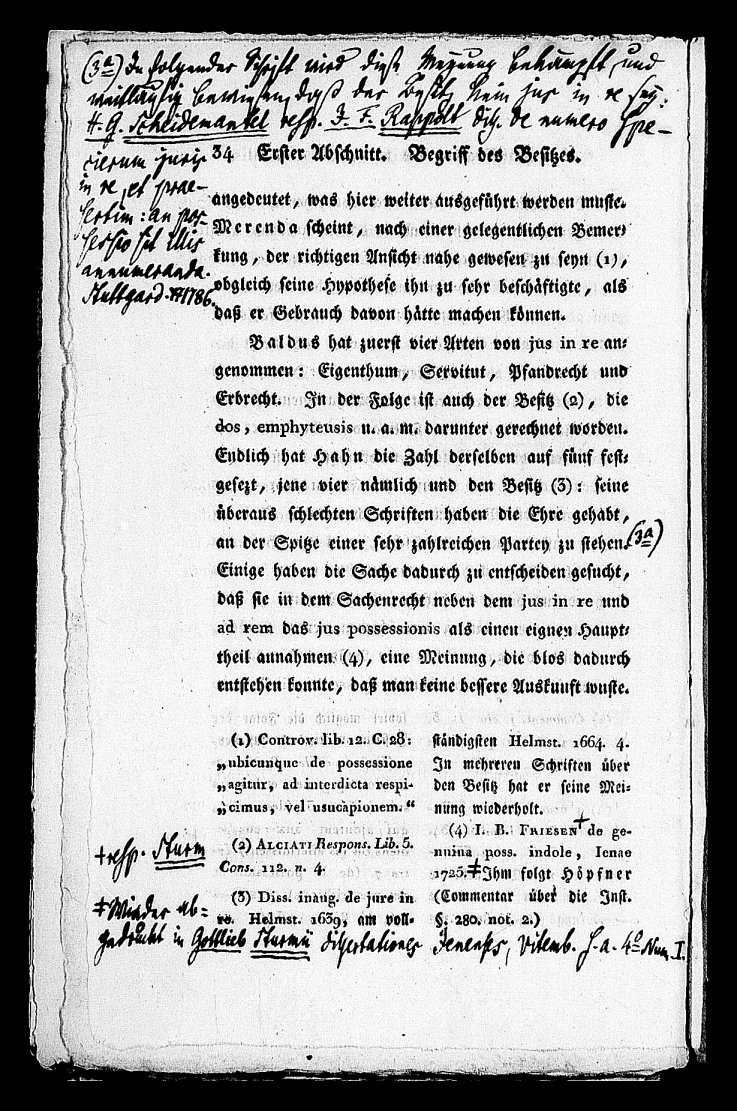 (3a) In folgender Schrift wird diese Meynung bekämpft, und
weitläufig bewiesen, daß der Besitz kein jus in re sey:
H. G. Scheidemantel resp. I. F. Rappolt diss. de numero spe-
cierum juris
in re, et prae-
sertim: an pos-
sessio sit illis
annumeranda.
Stuttgard. 1786.
34 Erster Abschnitt. Begriff des Besitzes.
angedeutet, was hier weiter ausgeführt werden muste.
Merenda scheint, nach einer gelegentlichen Bemer-
kung, der richtigen Ansicht nahe gewesen zu seyn (1),
obgleich seine Hypothese ihn zu sehr beschäftigte, als
daß er Gebrauch davon hätte machen können.
Baldus hat zuerst vier Arten von jus in re an-
genommen: Eigenthum, Servitut, Pfandrecht und
Erbrecht. In der Folge ist auch der Besitz (2), die
dos, emphyteusis u. a. m. darunter gerechnet worden.
Endlich hat Hahn die Zahl derselben auf fünf fest-
gesezt, jene vier nämlich und den Besitz (3): seine
überaus schlechten Schriften haben die Ehre gehabt,
an der Spitze einer sehr zahlreichen Partey zu stehen. (3a)
Einige haben die Sache dadurch zu entscheiden gesucht,
daß sie in dem Sachenrecht neben dem jus in re und
ad rem das jus possessionis als einen eignen Haupt-
theil annahmen (4), eine Meinung, die blos dadurch
entstehen konnte, daß man keine bessere Auskunft wuste.
(1) Controv. lib. 12. C. 28:
„ubicunque de possessione
„agitur, ad interdicta respi-
„cimus, vel usucapionem.“
(2) ALCIATI Respons. Lib. 5.
Cons. 112. n. 4.
(3) Diss. inaug. de jure in
re. Helmst. 1639, am voll-
ständigsten Helmst. 1664. 4.
In mehreren Schriften über
den Besitz hat er seine Mei-
nung wiederholt.
(4) I. B. FRIESEN † de ge-
nuina poss. indole, Ienae
1725. ‡ Ihm folgt Höpfner
(Commentar über die Inst.
§. 280. not. 2.)
† resp. Sturm
‡ Wieder ab-
gedruckt in Gottlieb Sturmii Dissertationes Jenenses, Vitemb. s. a. 4o Num. I.